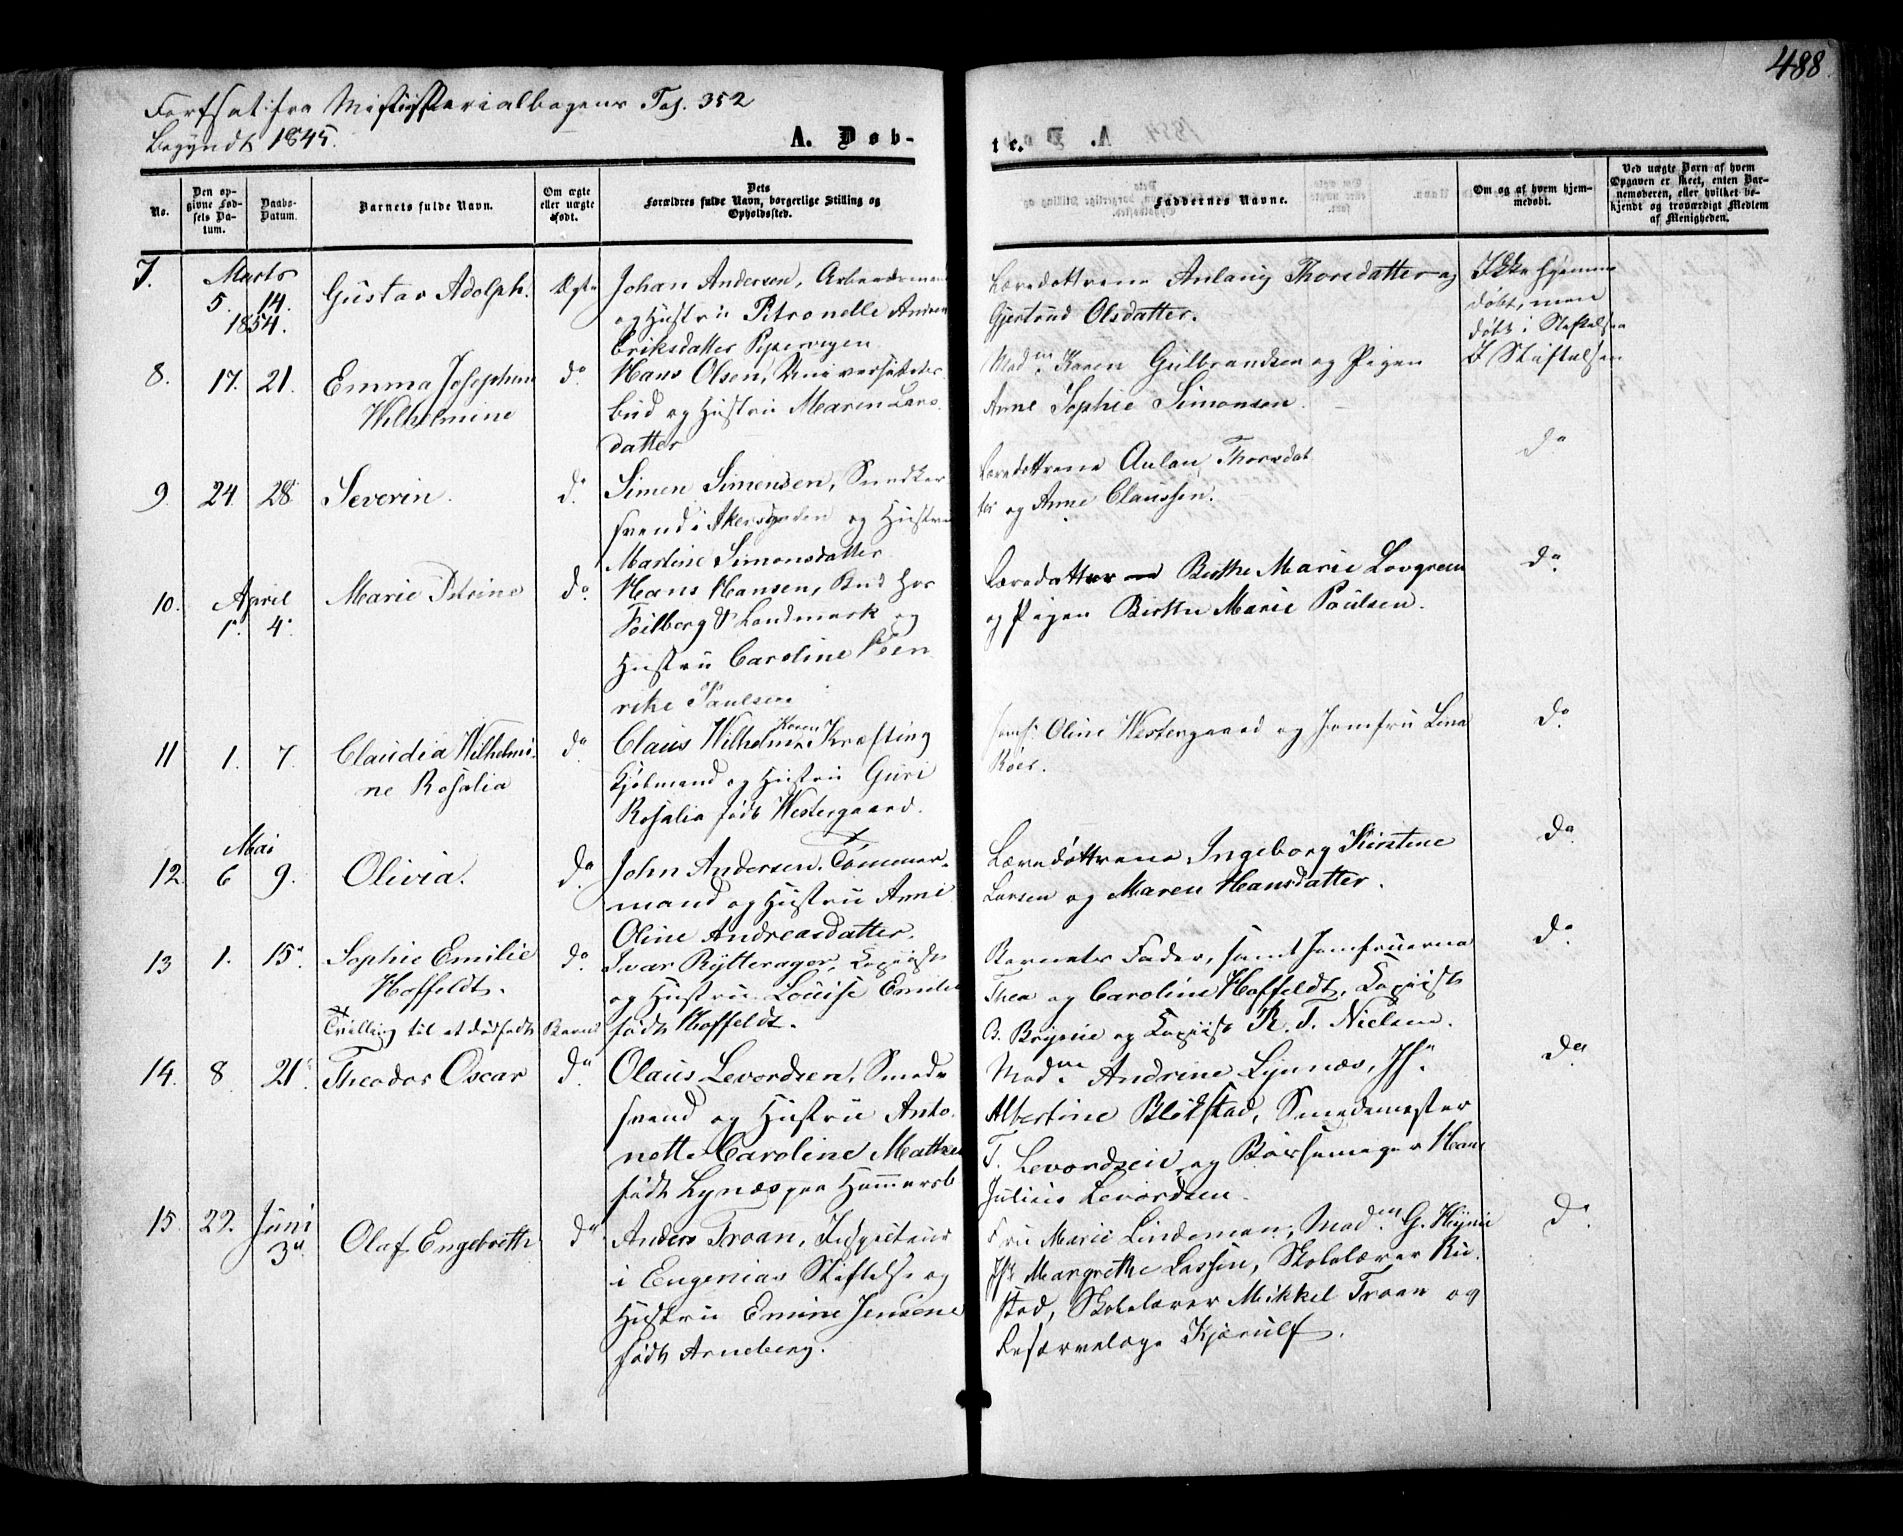 488
Fortsat fra Ministerialbogens Pag. 352
Begyndt 1845.
A. Døb-
te.
No.
Den op-
givne Fød-
sels Da-
tum.
Daabs-
Datum.
Barnets fulde Navn.
Om ægte
eller uægte
født.
Dets
Forældres fulde Navn, borgerlige Stilling og
Opholdssted.
Faddernes Navne.
Om og af hvem hjem-
medøbt.
Ved uægte Barn af hvem
Opgaven er skeet, enten Bar-
nemoderen, eller hvilket be-
kjendt og troværdigt Medlem
af Menigheden.
7.
Marts
5. 14.
1854.
Gustav Adolph.
Ægte
Johan Andersen, Arbeidsmand
og Hustru Petronelle Andrea
Eriksdatter Pipervigen
Læredøttrene Anlaug Thorsdatter og
Gjertrud Olsdatter.
Ikke hjemme
døbt, men
døbt i Stiftelsen
8. 17. 21.
Emma Josephine
Wilhelmine
do
Hans Olsen, Universitets-
bud og Hustru Maren Lars-
datter
Madm. Karen Gulbrandsen og Pigen
Anne Sophie Simonsen.
I Stiftelsen
9 24 28
Severin.
do
Simen Simensen, Snedker
svend i Akersgaden og Hustru
Martine Simonsdatter
Læredøttrene Aulau Thorsdat
ter og Anne Claussen.
do
10.
April
1. 4.
Marie Petrine
do
Hans Hansen, Bud hos
Feilberg & Landmark og
Hustru Caroline Hen
rike Paulsen
Læredatter Birthe Marie Lovgreen
og Pigen Birthe Marie Poulsen.
do
11 1. 7.
Claudia Wilhelmi-
ne Rosalia
do
Claus Wilhelm Koren Kræfting
Kjøbmand og Hustru Guri
Rosalia født Westergaard.
Jomf: Oline Westergaard og Jomfru Lina
Roer.
do
12.
Mai
6 9.
Olivia.
do
John Andersen, Tømmer-
mand og Hustru Anne
Oline Andreasdatter.
Læredøttrene Ingeborg Kirstine
Larsen og Maren Hansdatter.
do
13 1. 15.
Sophie Emilie
Hoffeldt.
Tvilling til et dødfødt Barn
do
Ivar Rytterager, Copiist
og Hustru Louise Emilie
født Hoffeldt.
Barnets Fader, samt Jomfruerne
Thea og Caroline Hoffeldt, Copiist
B. Brynie og Copiist R. T. Nielsen.
do
14. 8 21
Theodor Oscar
do
Olaus Levordsen, Smede
svend og Hustru Anto-
nette Caroline Mathea
født Lynæs paa Hammersb
Madme Andrine Lynnæs, Jfr
Albertine Blikstad, Smedemester
T. Levordsen og Børsemager Hans
Julius Levordsen.
do
15. 22.
Juni
3
Olaf Engebreth
do
Anders Troan, Inspecteur
i Eugenias Stiftelse og
Hustru Emine Jensene
født Arneberg.
Fru Marie Lindeman, Madm. G.
Jfr Margrethe Lassen, Skolelærer Ru-
stad, Skolelærer Mikkel Troan og
Reservelæge Kjerulf.
do